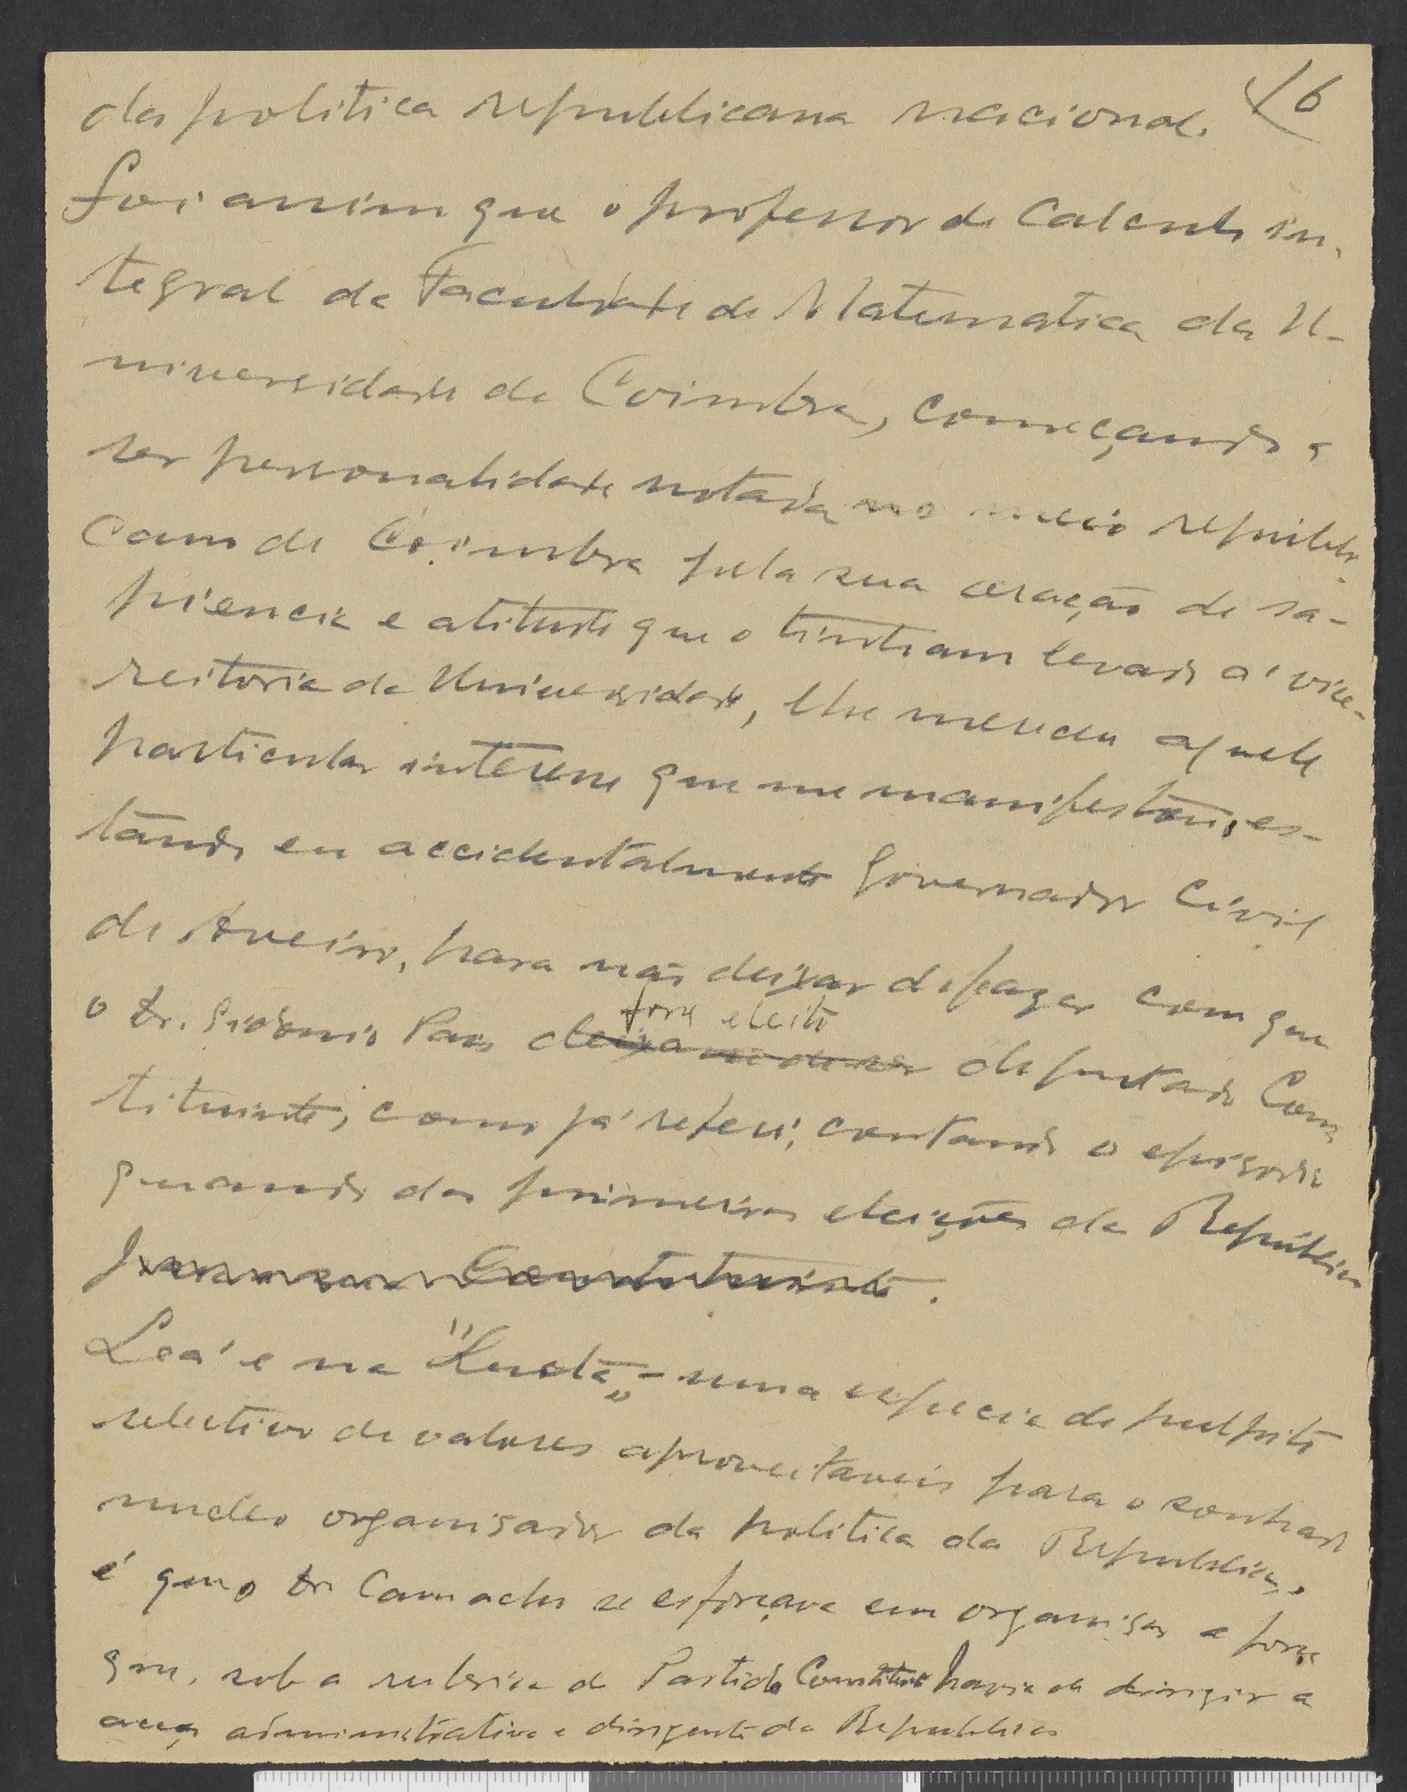 16
da politica republicana nacional.
Foi assim que o professor de Calculo in-
tegral da Faculdade de Matematica da U-
niversidade de Coimbra, começando a
ser personalidade notada no meio republi-
cano de Coimbra pela sua de sa-
piencia e atitude que o tinham levado á vice-
reitoria da Universidade, lhe mereceu aquele
particular interesse que me manifestou, es-
tando eu accidentalmente Governador Civil
de Aveiro, para não deixar de fazer com que
o Dr. Sidonio Paes fora eleito deputado Cons
tituinte, como já referi, contando o episodio
quando das primeiras eleições da Republica
Constituinte.
Lá e na "Lucta" - uma especie de pulpito
selectivo de valores aproveitaveis para o sonhado
nucleo organisador da politica da Republica,
é que o Dr Camacho se esforçava em organisar a força
que, sob a rubrica de Partido havia de dirigir a
acção administrativa e dirigente da Republica